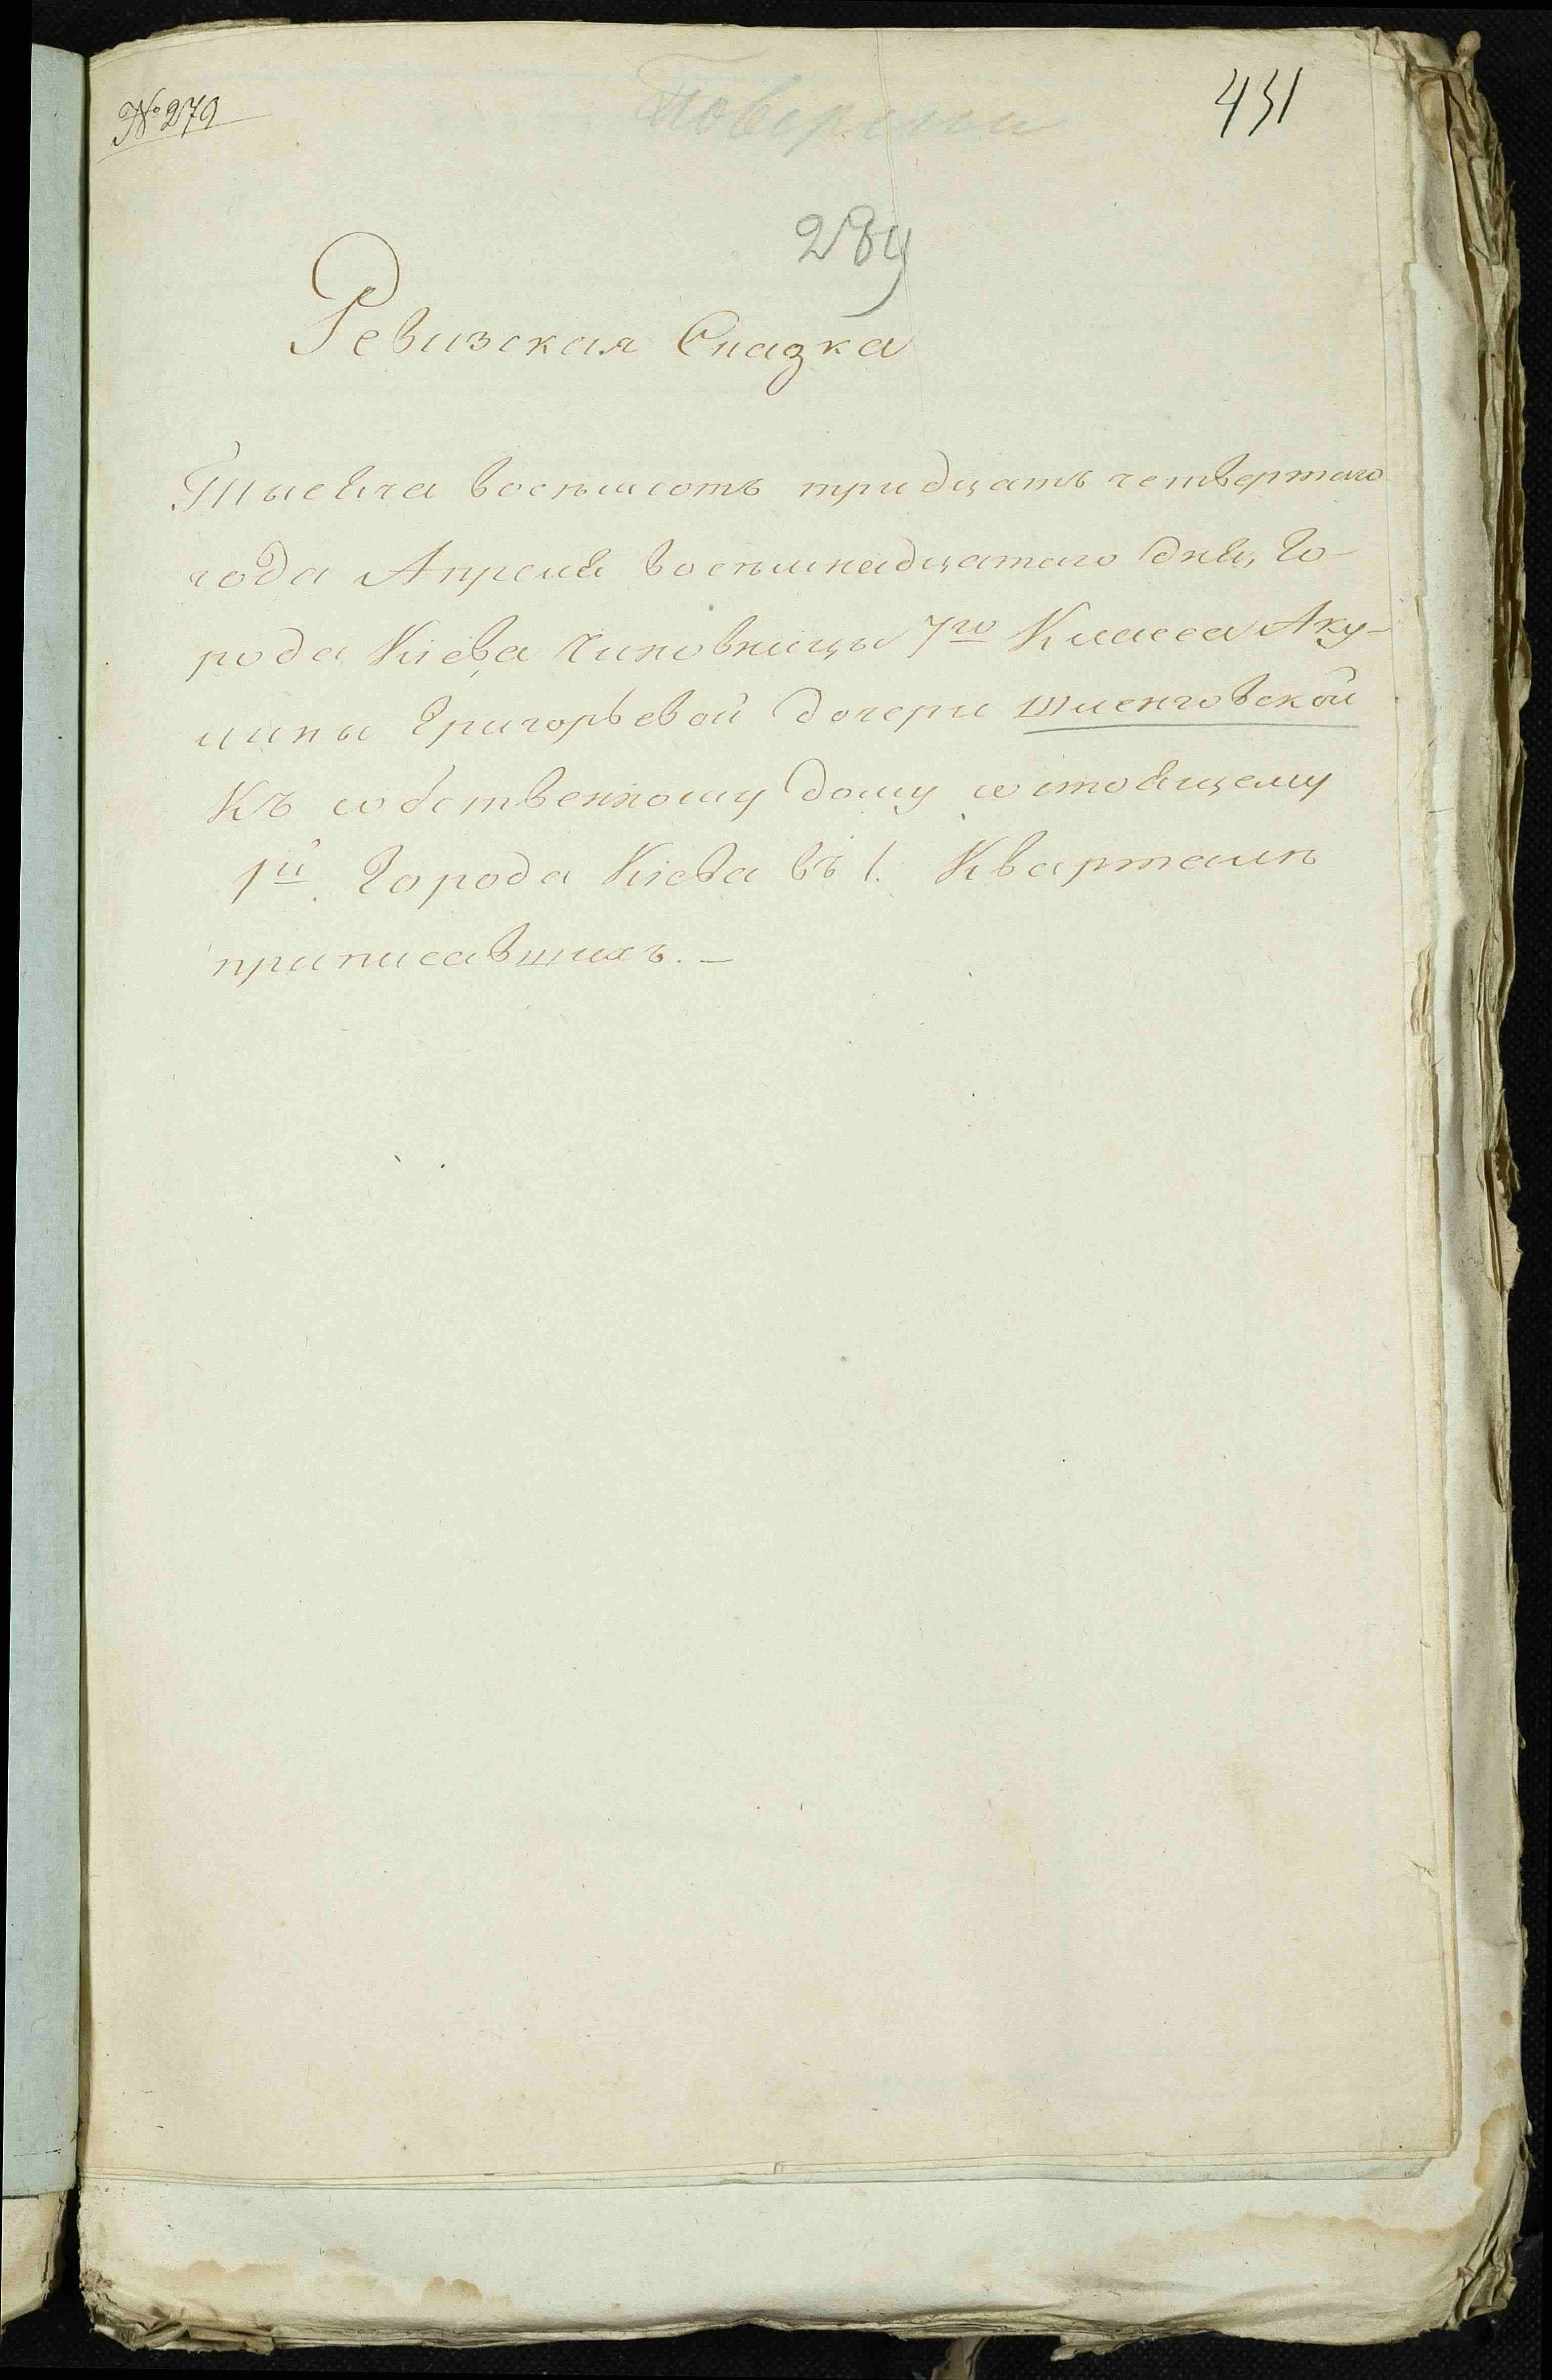 № 279
431
289
Ревизская Сказка
Тысяча восемьсотъ тридцать четвертаго
года Апреля восемьнадцатаго дня, Го-
рода Кіева Чиновницы 7го Класса Аку-
лины Григорьевой дочери Шленговской
Къ собственному дому состоящему
1й Города Кіева въ 1. Кварталѣ
приписавшихъ. —